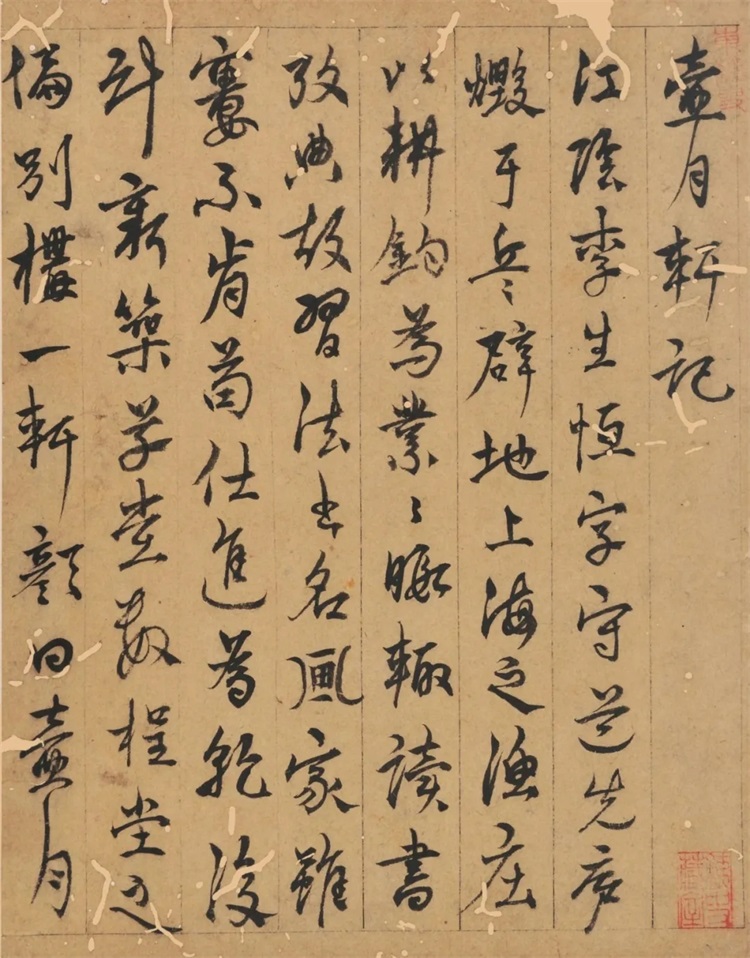 壺月軒記
江陰李生恒字守道先廬
燬于兵〻辟地上海之漁庄
以耕釣為業〻暇輙讀書
攷典故習法書名画家雖
寠不肯苟仕進荐乾没
計新築草堂數楹堂之
偏別構一軒顏曰壺月